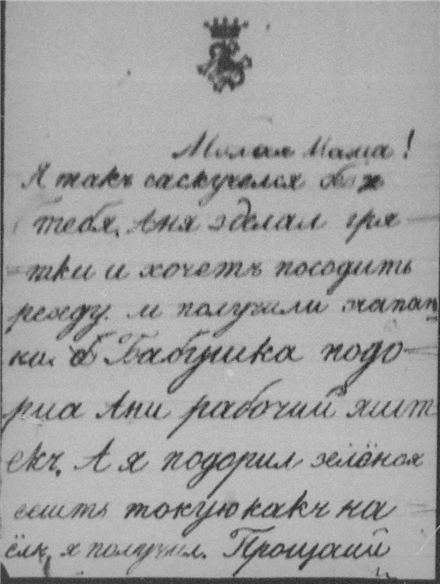 Милая Мама!
Я такъ саскучелся без
тебя. Аня зделал гря-
тки и хочетъ посодить
режду. м получили
Бабушка подо-
рила Ани рабочий яшт
екъ. А я подорил зелёноя
сешть токую какъ на
ёлк я получил. Прощаий